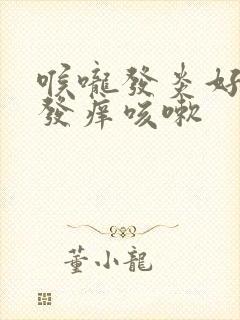 喉嚨發炎好
發痒咳嗽
董小龍